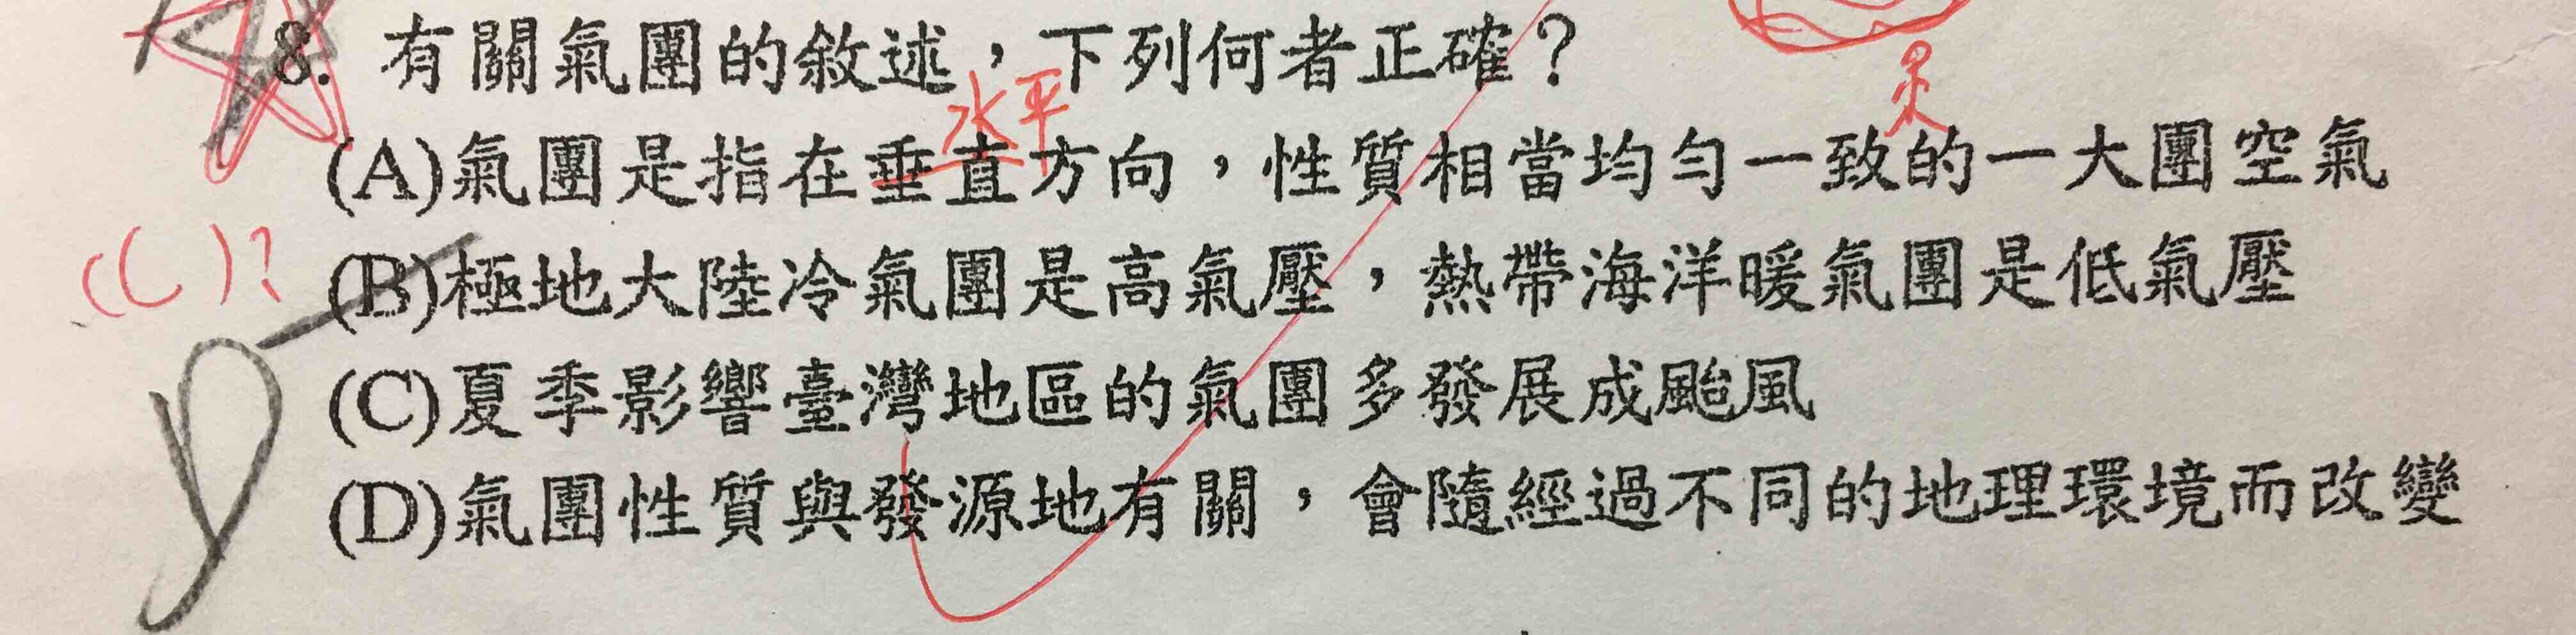 8. 有關氣團的敘述，下列何者正確？
水平
(A)氣團是指在垂直方向，性質相當均勻一致的一大團空氣
(C)?
(B)極地大陸冷氣團是高氣壓，熱帶海洋暖氣團是低氣壓
(C)夏季影響臺灣地區的氣團多發展成颱風
(D)氣團性質與發源地有關，會隨經過不同的地理環境而改變